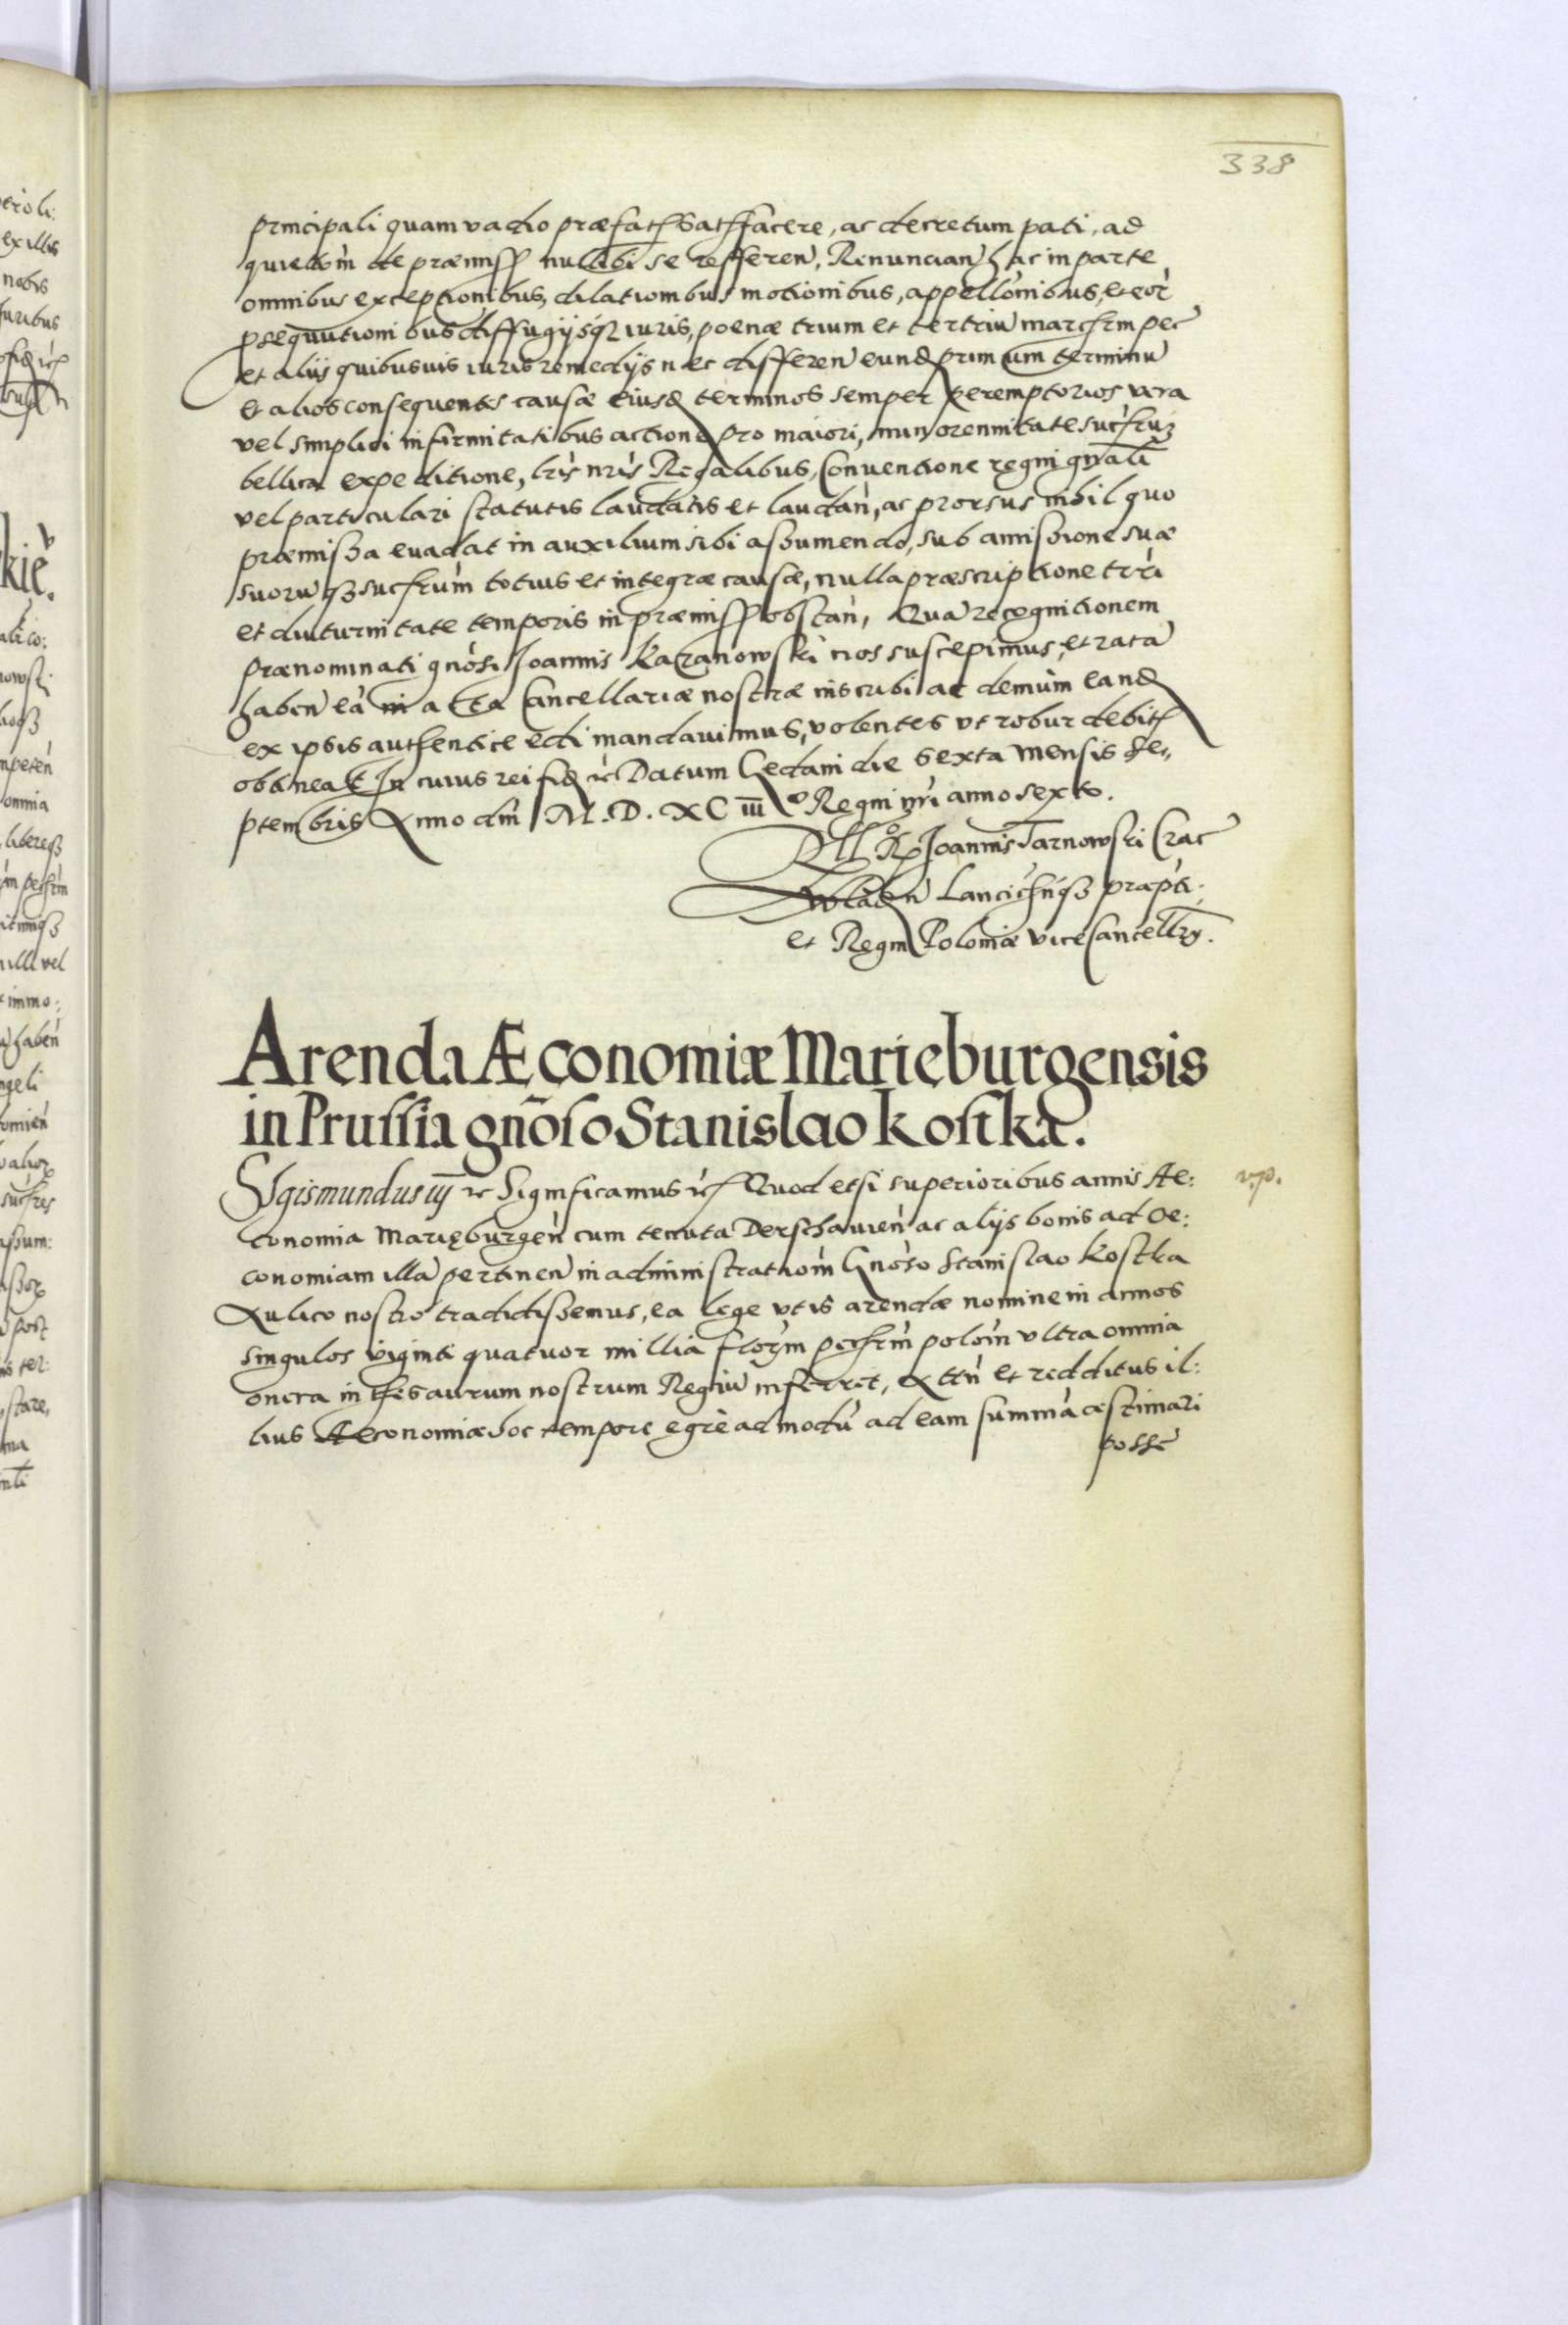 338
principali quam vadio præfat satffacere, ac decretum pati, ad
quietõm de præmiss nullibi se refferen, Renuncian hac in parte
omnibus exceptionibus, dilationibus motionibus, appellõnibus, et eor
psequutionibus diffugijsq iuris, poenæ trium et tertriu marcfrm pec
et aliis quibusuis iuris remedijs nec differen eund primum terminu
et alios consequentes causæ eiusd terminos semper peremptorios vera
vel simplici infirmitatibus actione pro maiori, minorennitate sucfru
bellica expeditione, lris nris Regalibus, Conventione regni gnali
vel particulari statutis laudatis et laudan, ac prorsus nihil quo
præmissa evadat in auxilium sibi assumendo, sub amissione suæ
suoruq sucfrum totius et integræ causæ, nulla præscriptione trri
et diuturnitate temporis in præmiss obstan, Qua recognitionem
prænominati gnosi Joannis Kazanowski nos suscepimus, et rata
haben ea in acta Cancellariæ nostræ inscribi ac demum eand
ex ipsis authentice edi mandavimus, volentes ut robur debit
obtineat In cuius rei fid &c Datum Gedani die sexta mensis Se,
ptembris Anno dni M.D.XCiii° Regni nri anno sexto.
Rllo Rp Joannis Tarnowski Crac
Wladn Lancicfiq præpti
et Regni Poloniæ viceCancellry.
Arenda Æconomiæ Marieburgensis
in Prussia gnõso Stanislao Kostka.
Sigismundus iij &c Significamus &c Quod etsi superioribus annis Ae:
v.p.
conomia Marieburgen cum tenuta Derschauien ac alijs bonis ad Oe:
conomiam illa pertinen in administrationm Gnoso Stanislao Kostka
Aulico nostro tradidissemus, ea lege ut is arendæ nomine in annos
singulos viginti quatuor millia florm pecfrm polom ultra omnia
onera in thesaurum nostrum Regiu inferret, Attn et redditus il:
lius Aeconomiæ hoc tempore egre admodu ad eam summa æstimari
posse